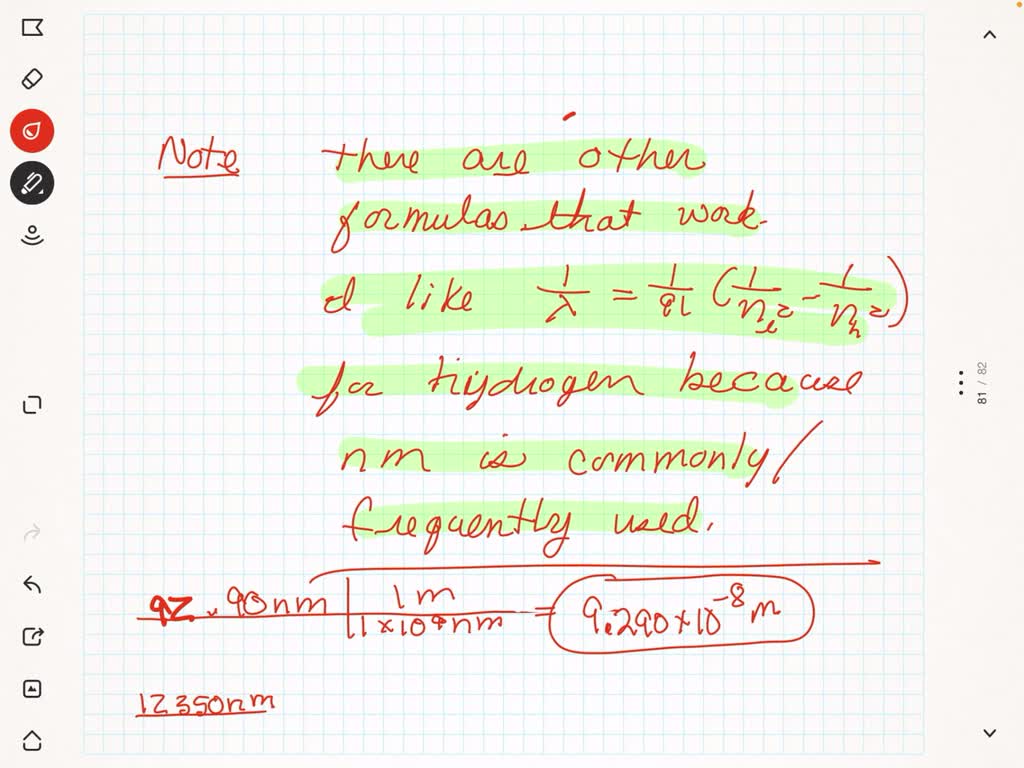 Note there are other
formulas that work.
I like 1/λ = 1/91 (1/n_l² - 1/n_h²)
for Hydrogen because
nm is commonly/
frequently used.
92.90nm | 1m / 1×10⁹nm = 9.290×10⁻⁸m
12350nm
81 / 82